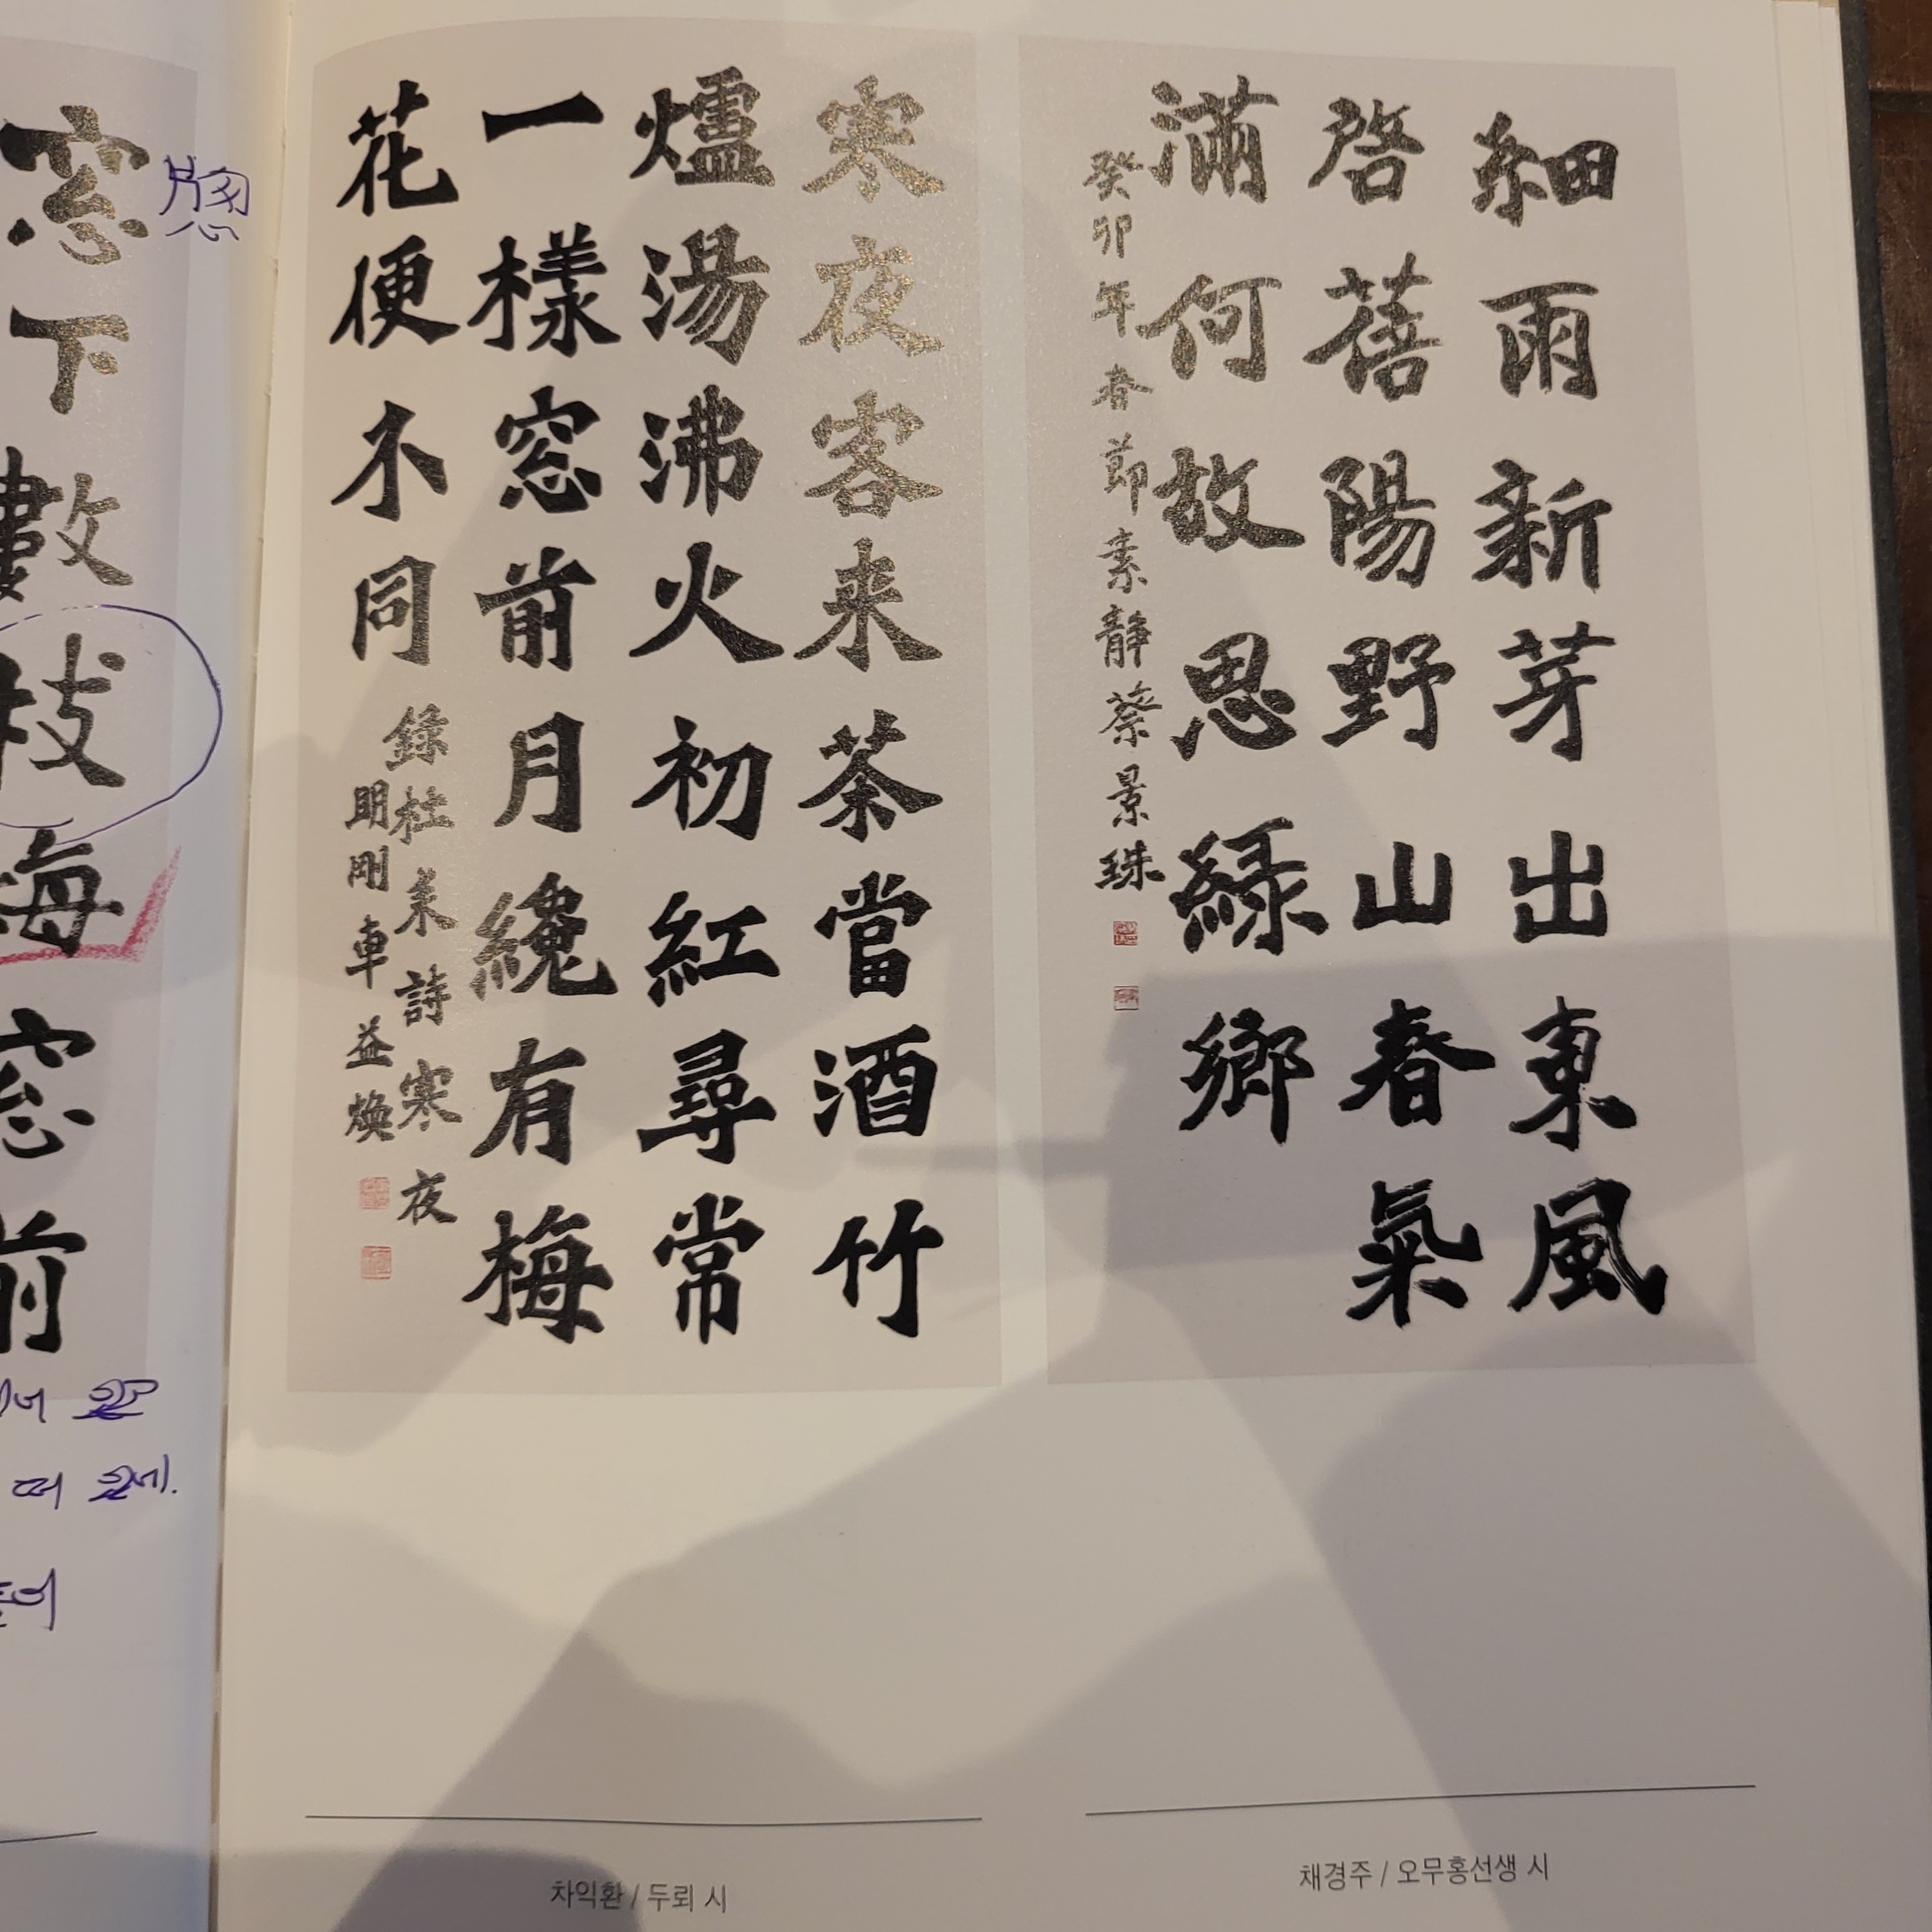 細雨新芽出東風
啓蓓陽野山春氣
滿何故思綠鄉
癸卯年春節素靜蔡景珠
寒夜客来茶當酒竹
爐湯沸火初紅尋常
一樣窓前月纔有梅
花便不同
錄杜耒詩寒夜
明剛車益煥
窓下數枝梅窓前
채경주 / 오무홍선생 시
차익환 / 두뢰 시